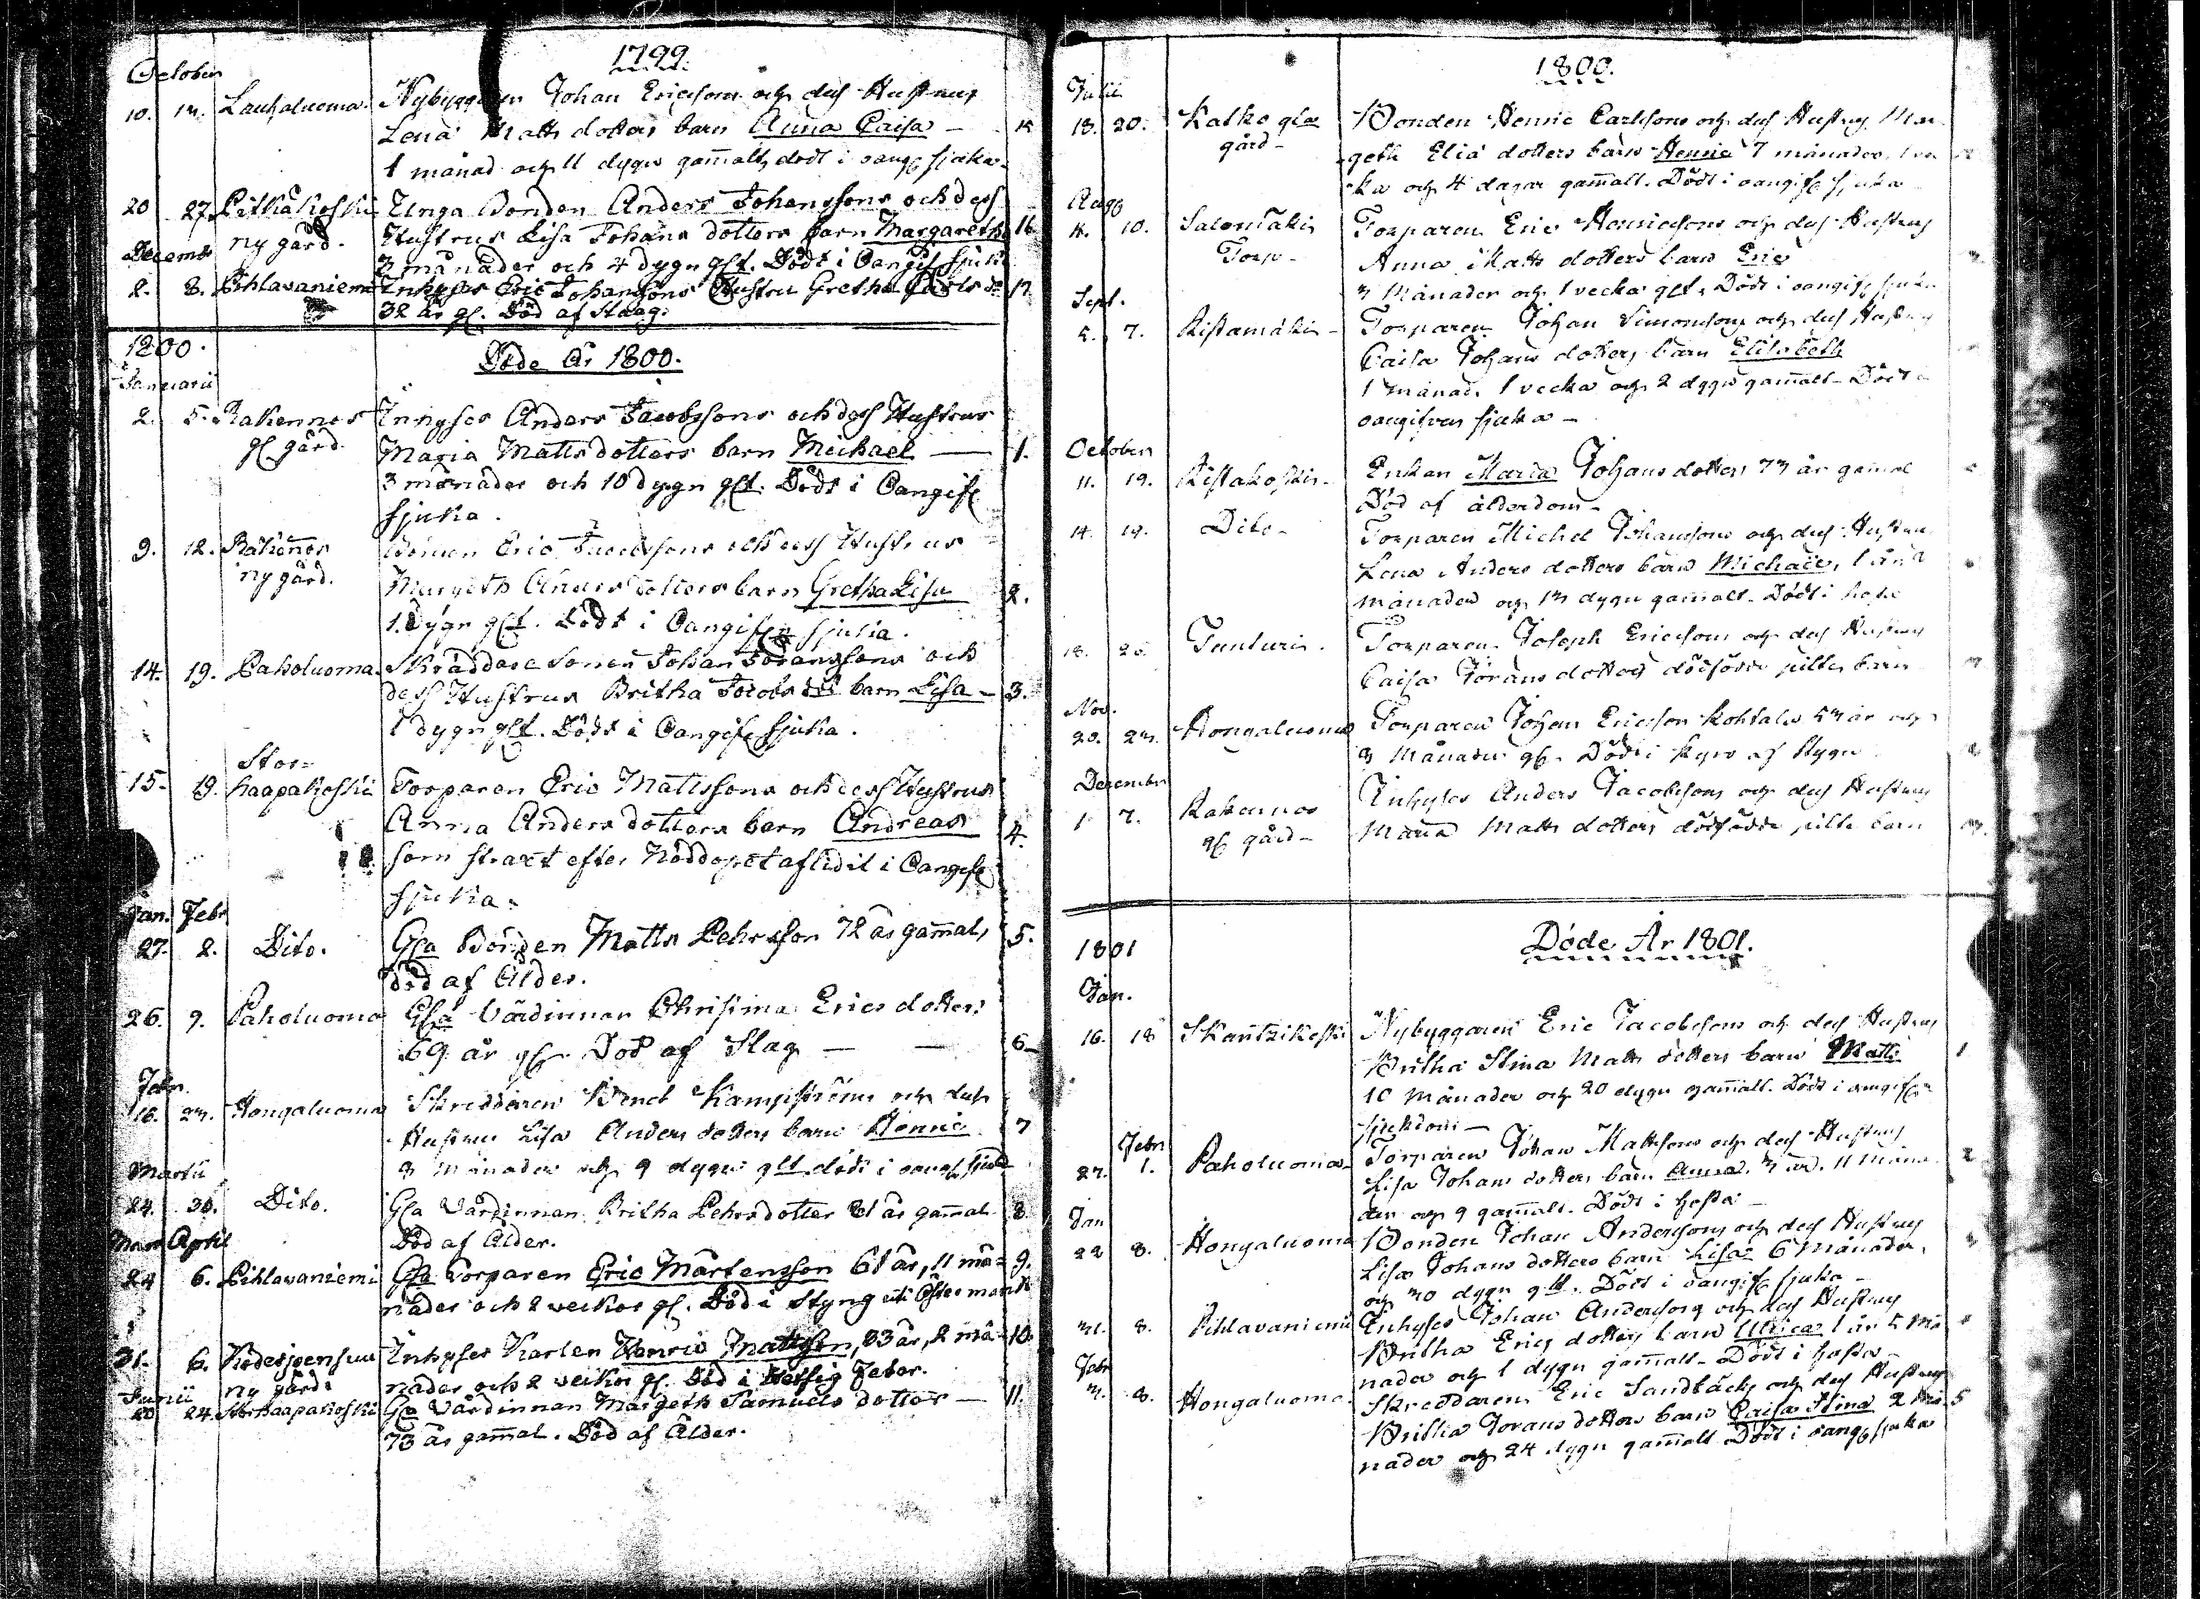 1799.
October
10. 13. Lauhaluoma. Nybyggaren Johan Ericsons och dess Hustrus
Lena Matts dotters barn Anna Caisa — 15
1 månad och 11 dygn gam̄alt, dödt i oang. sjuka
20 27. Pitkäkoski Unga Bonden Anders Johanssons och dess
ny gård. Hustrus Lisa Johans dotters barn Margaretha 16
Decemb. 3 månader och 4 dygn glt. Dödt i Oangif. sjuka
2. 8. Pihlavaniemi Inhyses Eric Johanssons Hustru Gretha 17
32 år gl. Död af Slag.
1800.
Döde År 1800.
Januarii
2. 5. Rakennos Inhyses Anders Jacobssons och dess Hustrus
gl. gård. Maria Matts dotters barn Michael — 1.
3 månader och 10 dygn glt. Dödt i Oangif.
sjuka.
9. 12. Raken̄os Bonden Eric Jacobssons och dess Hustrus
ny gård. Margeth Anders dotters barn Gretha Lisa 2.
1. Dygn glt. Dödt i Oangifen sjuka.
14. 19. Paholuoma Skräddare Sonen Johan Göranssons och
dess Hustrus Britha Jacobs barn Lisa — 3.
1 dygn glt. Dödt i Oangif. sjuka.
Stor=
15. 19. haapakoski Torparen Eric Mattssons och dess Hustrus
Anna Anders dotters barn Andreas 4.
som straxt efter Nöddopet aflidit i Oangif.
sjuka.
Jan. Febr.
27. 2. Dito. Gla Bonden Matts Pehrsson 72 år gam̄al, 5.
död af Ålder.
26. 9. Paholuoma Gla Värdinnan Christina Erics dotter
69 år gl. Död af Slag — — 6
Febr.
16. 23. Hongaluoma Skreddaren Kampströms och dess
Hustrus Lisa Anders dotters barn Henric 7
3 månader och 9 dygn glt dödt i oangif. sjuka
Martii
24. 30. Dito. Gla Värdinnan Britha Pehrsdotter 81 år gammal 8.
Död af Ålder.
Mars April
24 6. Pihlavaniemi Gla Torparen Eric Mårtensson 61 år, 11 må= 9.
nader och 2 veckor gl. Död i Styng
31. 6. ny gård. Inhyses Karlen Henric Mattsson, 33 år, 2 må= 10.
nader och 2 veckor gl. Död i Hetsig Feber.
Junii
20 24. Storhaapakoski Gla Värdinnan Margeth Samuels dotter — 11.
73 år gam̄al. Död af Ålder.
1800.
Julii
18. 20. Katko gla Bonden Henric Carlssons och dess Hustrus Mar
gård — geth Eliæ dotters barn Henric 7 månader, 1 vec
ka och 4 dagar gam̄alt. Dödt i oangif. sjuka
Aug.
10. Salomäki Torparen Eric Henricssons och dess Hustrus
Torp — Anna Matts dotters barn Eric
3 Månader och 1 vecka glt. Dödt i oangif. sjuka
Sept.
5. 7. Ristamäki — Torparen Johan Simonssons och dess Hustrus
Caisa Johans dotters barn Elisabeth
1 månad, 1 vecka och 2 dygn gam̄alt — Dödt i
oangifven sjuka —
October
11. 19. Ristakoski — Enkan Maria Johans dotter 73 år gammal
Död af ålderdom —
14. 19. Dito — Torparen Michel Johanssons och dess Hustrus
Lena Anders dotters barn Michael, 1 år
månader och 13 dygn gam̄alt. Dödt i hosta
18. Tunturi. Torparen Joseph Ericssons och dess Hustrus
Caisa Görans dotters dödfödde pilte barn
Nov.
20. 23. Hongaluoma Torparen Johan Ericsson 53 år och
3 Månader gl. Död i Kyro af Stygn
December
1 7. Rakennos Inhyses Anders Jacobssons och dess Hustrus
gl. gård — Maria Matts dotters dödfödde pilte barn
1801
Döde År 1801.
Jan.
16. 18 Skantzikoski Nybyggaren Eric Jacobssons och dess Hustrus
Britha Stina Matts dotters barn Matts 1
10 Månader och 20 dygn gam̄alt. Dödt i oangifven
sjukdom —
Febr.
27. 1. Paholuoma Torparen Johan Mattssons och dess Hustrus
Lisa Johans dotters barn Anna, 3 år, 11 måna 2
der och 9 gam̄alt. Dödt i hosta —
Jan
22 8. Hongaluoma Bonden Johan Anderssons och dess Hustrus
Lisa Johans dotters barn Lisa 6 månader,
och 30 dygn glt. Dödt i oangif. sjuka —
31. 8. Pihlavaniemi Inhyses Johan Anderssons och dess Hustrus
Britha Erics dotters barn Ulrica 1 år 5 må
nader och 1 dygn gam̄alt — Dödt i hosta —
Febr.
3. 8. Hongaluoma. Skreddaren Eric Sandbäcks och dess Hustrus
Britha Görans dotters barn Caisa Stina 2 må 5
nader och 24 dygn gam̄alt Dödt i oangif. sjuka